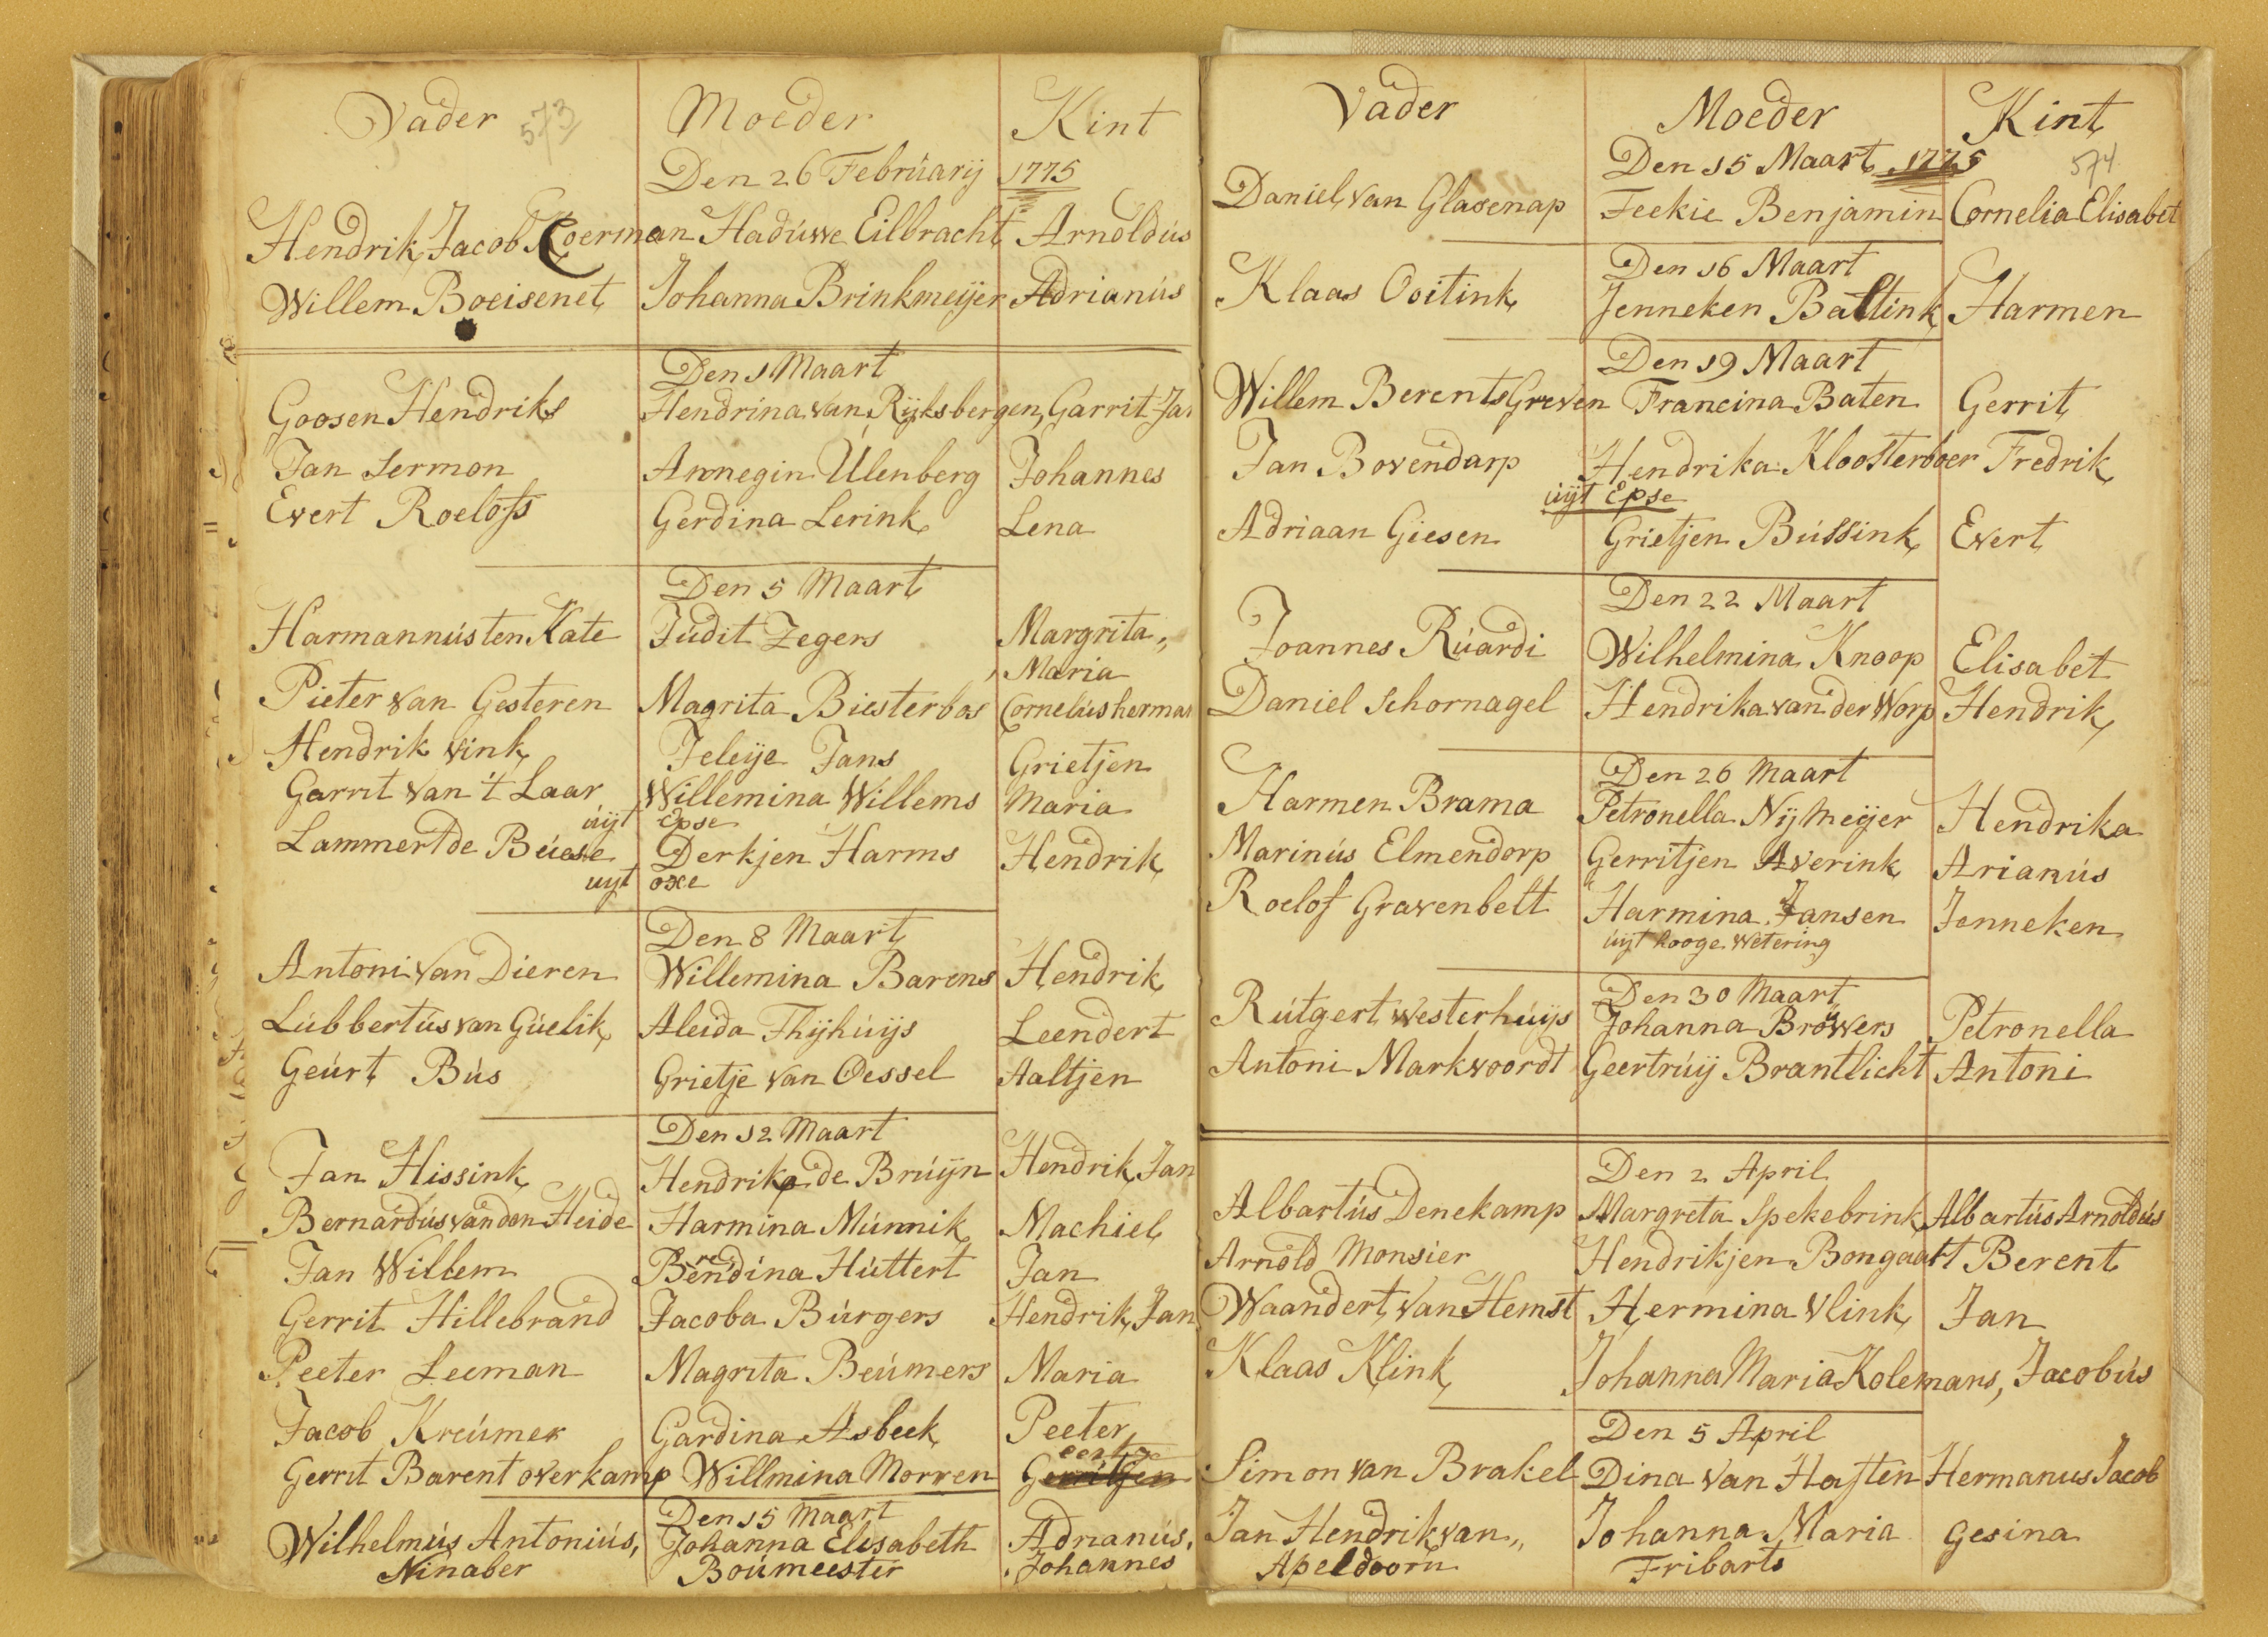 Vader 573 Moeder Kint
Den 26 Februarij 1775
Hendrik Jacob Koerman Haduwe Eilbracht Arnoldus
Willem Boeisenet Johanna Brinkmeijer Adrianus
Den 1 Maart
Goosen Hendriks Hendrina van Rijksbergen, Garrit Jan
Jan Sermon Annegin Ulenberg Johannes
Evert Roelofs Gerdina Lerink Lena
Den 5 Maart
Harmannus ten Kate Judit Zegers Margrita,,
Maria
Pieter van Gesteren Magrita Biesterbos Cornelus herman
Hendrik Vink Jeleije Jans Grietjen
Garrit van 't Laar Willemina Willems Maria
uijt Epse
Lammert de Beuse Derkjen Harms Hendrik
uijt oxe
Den 8 Maart
Antoni van Dieren Willemina Barens Hendrik
Lubbertus van Guelik Aleida Thijhuijs Leendert
Geurt Bus Grietje van Oessel Aaltjen
Den 12 Maart
Jan Hissink Hendrika de Bruijn Hendrik Jan
Bernardus van den Heide Harmina Munnik Machiel
Jan Willem Berendina Huttert Jan
Gerrit Hillebrand Jacoba Burgers Hendrik Jan
Peeter Leeman Magrita Beumers Maria
Jacob Kreumer Gardina Asbeek Peeter
Gerrit Barent overkamp Willmina Morren Gerritjen
Den 15 Maart
Wilhelmus Antonius, Johanna Elisabeth Adrianus,
Ninaber Boumeester Johannes
Vader Moeder Kint
Den 15 Maart 1775 574
Daniel van Glasenap Feekie Benjamin Cornelia Elisabet
Den 16 Maart
Klaas Ooitink Jenneken Baltink Harmen
Den 19 Maart
Willem Berents Greven Francina Baten Gerrit
Jan Bovendarp Hendrika Kloosterboer Fredrik
uijt Epse
Adriaan Giesen Grietjen Bussink Evert
Den 22 Maart
Joannes Ruardi Wilhelmina Knoop Elisabet
Daniel Schornagel Hendrika van der Worp Hendrik
Den 26 Maart
Harmen Brama Petronella Nijmeijer Hendrika
Marinus Elmendorp Gerritjen Averink Arianus
Roelof Gravenbelt Harmina Jansen Jenneken
uijt hooge Wetering
Den 30 Maart
Rutgert Westerhuijs Johanna Browers Petronella
Antoni Markvoordt Geertruij Brantlicht Antoni
Den 2 April
Albartus Denekamp Margreta Spekebrink Albartus Arnoldus
Arnold Monsier Hendrikjen Bongaart Berent
Waandert van Hemst Hermina Vlink Jan
Klaas Klink Johanna Maria Kolemans, Jacobus
Den 5 April
Simon van Brakel Dina van Haften Hermanus Jacob
Jan Hendrik van,, Johanna Maria Gesina
Apeldoorn Fribarts